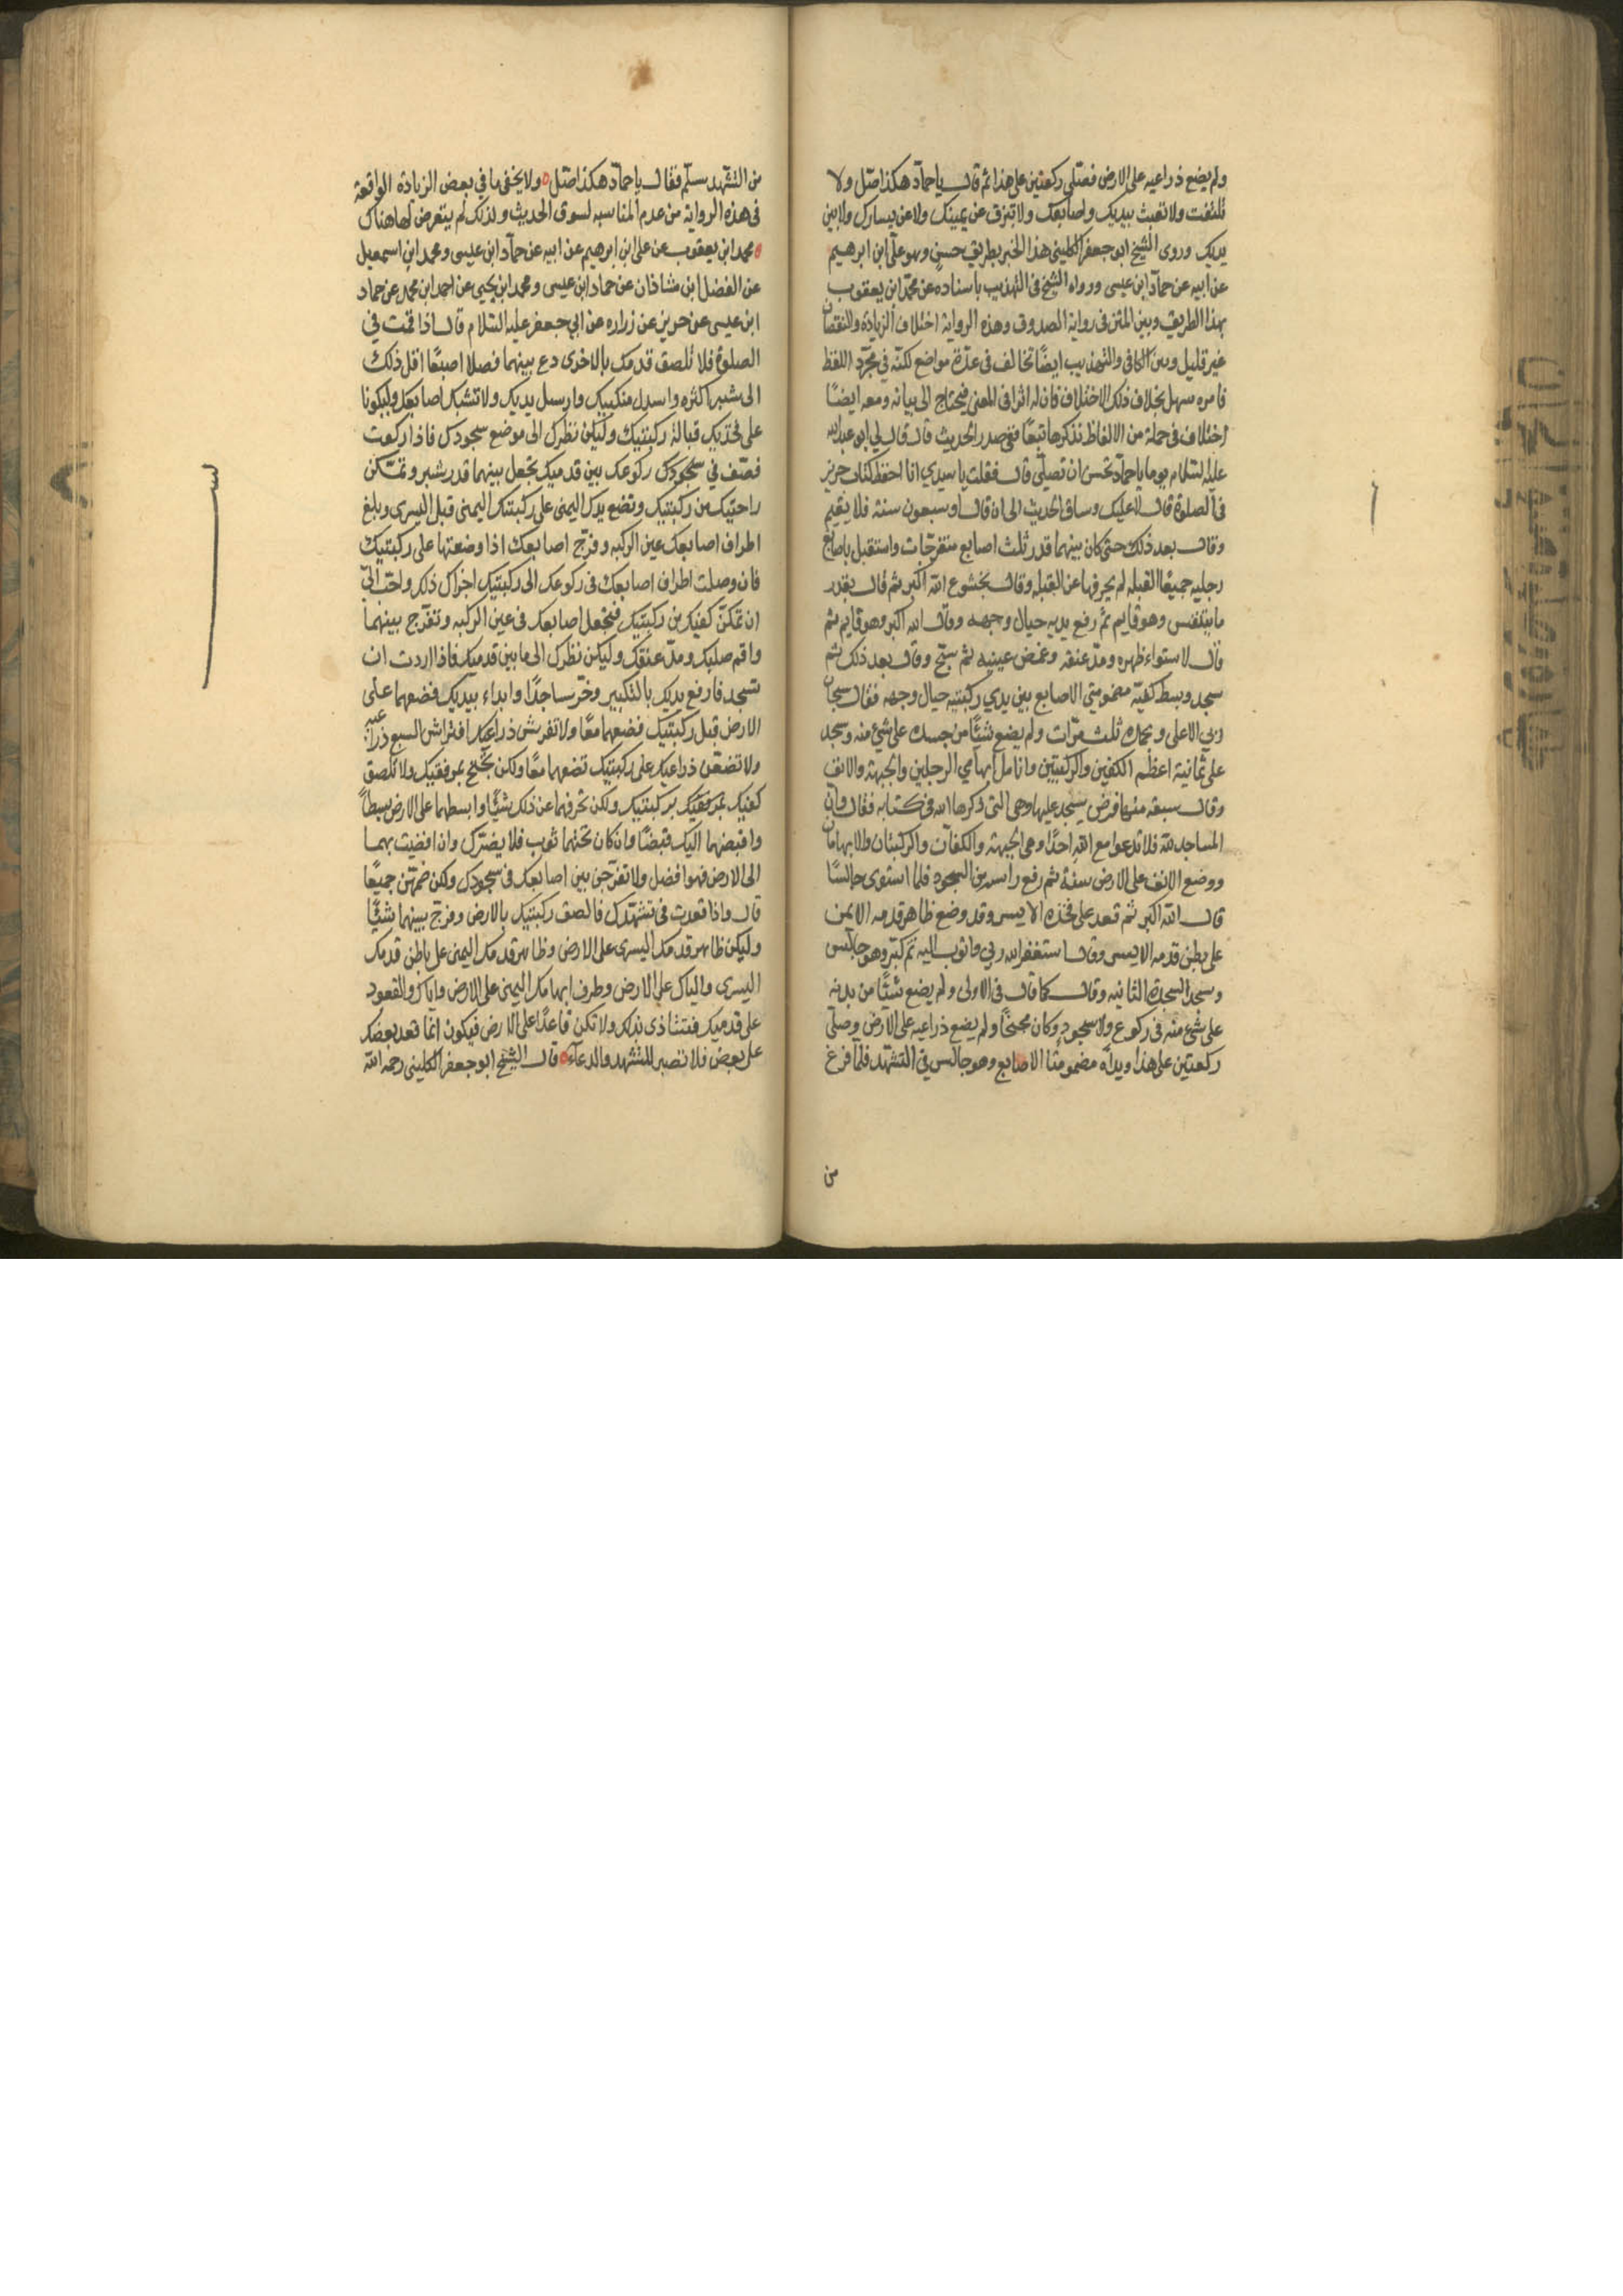 ولم يضع ذراعيه على الارض فصلى ركعتين على هذا ثم قال يا حماد هكذا صل ولا
تلتفت ولا تعبث بيديك واصابعك ولا تبزق عن يمينك ولا عن يسارك ولا بين
يديك وروى الشيخ ابو جعفر الكليني هذا الخبر بطريق حسن وهو على ابن ابرهيم
عن ابيه عن حماد ابن عيسى ورواه الشيخ في التهذيب باسناده عن محمد ابن يعقوب
بهذا الطريق وبين المتن في رواية الصدوق وهذه الرواية اختلاف الزيادة والنقصان
غير قليل وبين الكافي والتهذيب ايضًا تخالف في عدة مواضع لكنه في مجرد اللفظ
فامره سهل بخلاف ذلك الاختلاف فان له اثرا في المعنى فيحتاج الى بيانه ومعه ايضًا
اختلاف في جملة من الالفاظ نذكرها تبعًا ففي صدر الحديث قال قال لي ابو عبد الله
عليه السلام يوما يا حماد تحسن ان تصلي قال فقلت يا سيدي انا احفظ كتاب حريز
في الصلوة قال لا عليك وساق الحديث الى ان قال او سبعون سنة فلا يقيم
وقال بعد ذلك حتى كان بينهما قدر ثلث اصابع منفرجات واستقبل باصابع
رجليه جميعًا القبلة لم يحرفها عن القبلة وقال بخشوع الله اكبر ثم قال بقدر
ما يتنفس وهو قايم ثم رفع يديه حيال وجهه وقال الله اكبر وهو قايم ثم
قال لاستواء ظهره ومد عنقه وغمض عينيه ثم سبح وقال بعد ذلك ثم
سجد وبسط كفيه مضمومتي الاصابع بين يدي ركبتيه حيال وجهه فقال سبحان
ربي الاعلى وبحمده ثلث مرات ولم يضع شيئًا من جسده على شئ منه وسجد
على ثمانية اعظم الكفين والركبتين وانامل ابهامي الرجلين والجبهة والانف
وقال سبعة منها فرض يسجد عليها وهي التي ذكرها الله في كتابه فقال وان
المساجد لله فلا تدعوا مع الله احدًا وهي الجبهة والكفان والركبتان والابهامان
ووضع الانف على الارض سنة ثم رفع راسه من السجود فلما استوى جالسًا
قال الله اكبر ثم قعد على فخذه الايسر وقد وضع ظاهر قدمه الايمن
على بطن قدمه الايسر وقال استغفر الله ربي واتوب اليه ثم كبر وهو جالس
وسجد السجدة الثانيه وقال كما قال في الاولى ولم يضع شيئًا من بدنه
على شئ منه في ركوع ولا سجود وكان مجنحًا ولم يضع ذراعيه على الارض وصلى
ركعتين على هذا ويداه مضمومتا الاصابع وهو جالس في التشهد فلما فرغ
من
من التشهد سلم فقال يا حماد هكذا صل ولا يخفى ما في بعض الزيادة الواقعة
في هذه الرواية من عدم المناسبه لسوق الحديث ولذلك لم يتعرض لها هناك
محمد ابن يعقوب عن على ابن ابرهيم عن ابيه عن حماد ابن عيسى ومحمد ابن اسمعيل
عن الفضل ابن شاذان عن حماد ابن عيسى ومحمد ابن يحيى عن احمد ابن محمد عن حماد
ابن عيسى عن حريز عن زراره عن ابي جعفر عليه السلام قال اذا قمت في
الصلوة فلا تلصق قدمك بالاخرى دع بينهما فصلا اصبعًا اقل ذلك
الى شبر اكثره واسدل منكبيك وارسل يديك ولا تشبك اصابعك وليكونا
على فخذيك قبالة ركبتيك وليكن نظرك الى موضع سجودك فاذا ركعت
فصف في ركوعك بين قدميك تجعل بينهما قدر شبر وتمكن
راحتيك من ركبتيك وتضع يدك اليمنى على ركبتك اليمنى قبل اليسرى وبلغ
اطراف اصابعك عين الركبه وفرج اصابعك اذا وضعتها على ركبتيك
فان وصلت اطراف اصابعك في ركوعك الى ركبتيك اجزاك ذلك واحب الي
ان تمكن كفيك من ركبتيك فتجعل اصابعك في عين الركبه وتفرج بينهما
واقم صلبك ومد عنقك وليكن نظرك الى ما بين قدميك فاذا اردت ان
تسجد فارفع يديك بالتكبير وخر ساجدًا وابداء بيديك فضعهما على
الارض قبل ركبتيك فضعهما معًا ولا تفترش ذراعيك افتراش السبع ذراعيه
ولا تضعن ذراعيك على ركبتيك تضعهما معًا ولكن تجنح بمرفقيك ولا تلصق
كفيك بركبتيك ولكن تحرفهما عن ذلك شيئًا وابسطهما على الارض بسطًا
واقبضهما اليك قبضًا وان كان تحتهما ثوب فلا يضرك وان افضيت بهما
الى الارض فهو افضل ولا تفرجن بين اصابعك في سجودك ولكن ضمهن جميعًا
قال واذا قعدت في تشهدك فالصق ركبتيك بالارض وفرج بينهما شيئًا
وليكن ظاهر قدمك اليسرى على الارض وظاهر قدمك اليمنى على باطن قدمك
اليسرى والياك على الارض وطرف ابهامك اليمنى على الارض واياك والقعود
على قدميك فتتاذى بذلك ولا تكن قاعدًا على الارض فيكون انما قعد بعضك
على بعض فلا تصبر للتشهد والدعاء قال الشيخ ابو جعفر الكليني رحمه الله